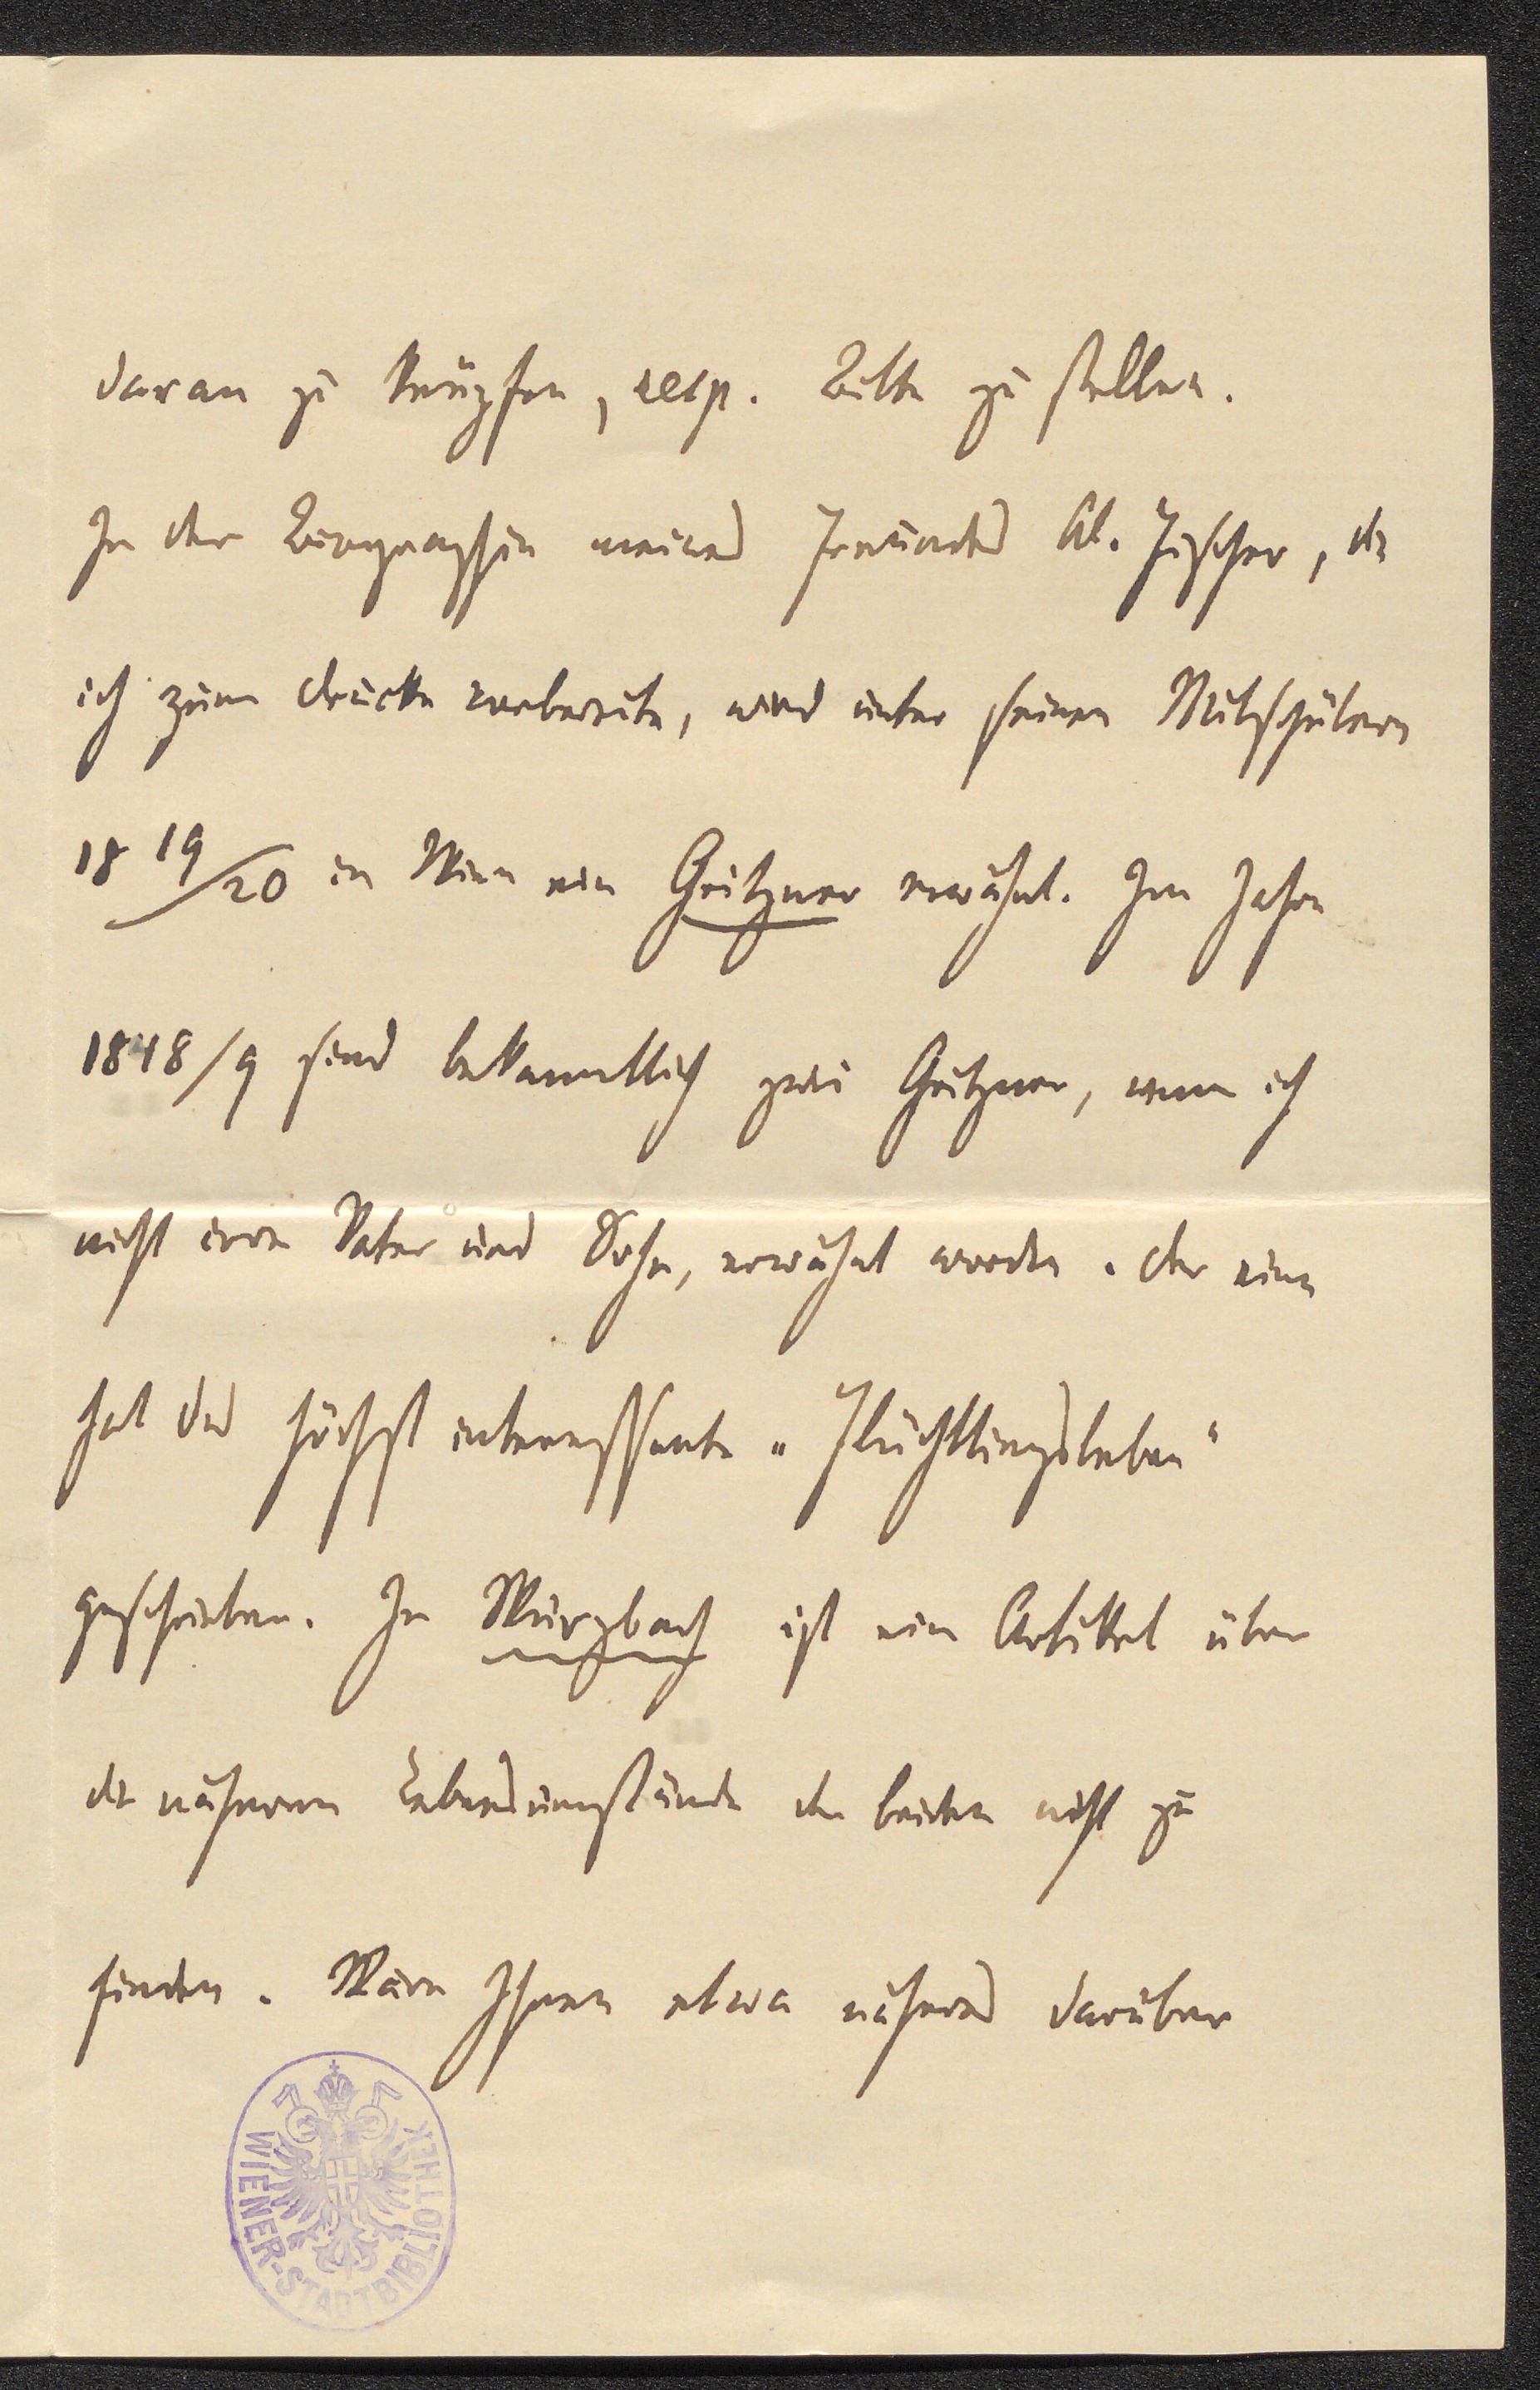 daran zu knüpfen, resp. Bitte zu stellen.
In der Biographie meines Freundes Al. Fischer, die
ich zum Drucke vorbereite, wird unter seinen Mitschülern
18 19/20 in Wien ein Gritzner erwähnt. Im Jahre
1848/9 sind bekanntlich zwei Gritzner, wenn ich
nicht irre Vater und Sohn, erwähnt worden. Der eine
hat das höchst interessante „Flüchtlingsleben“
geschrieben. In Wurzbach ist ein Artikel über
die näheren Lebensumstände der beiden nicht zu
finden. Wäre Ihnen etwa näheres darüber
WIENER-STADTBIBLIOTHEK